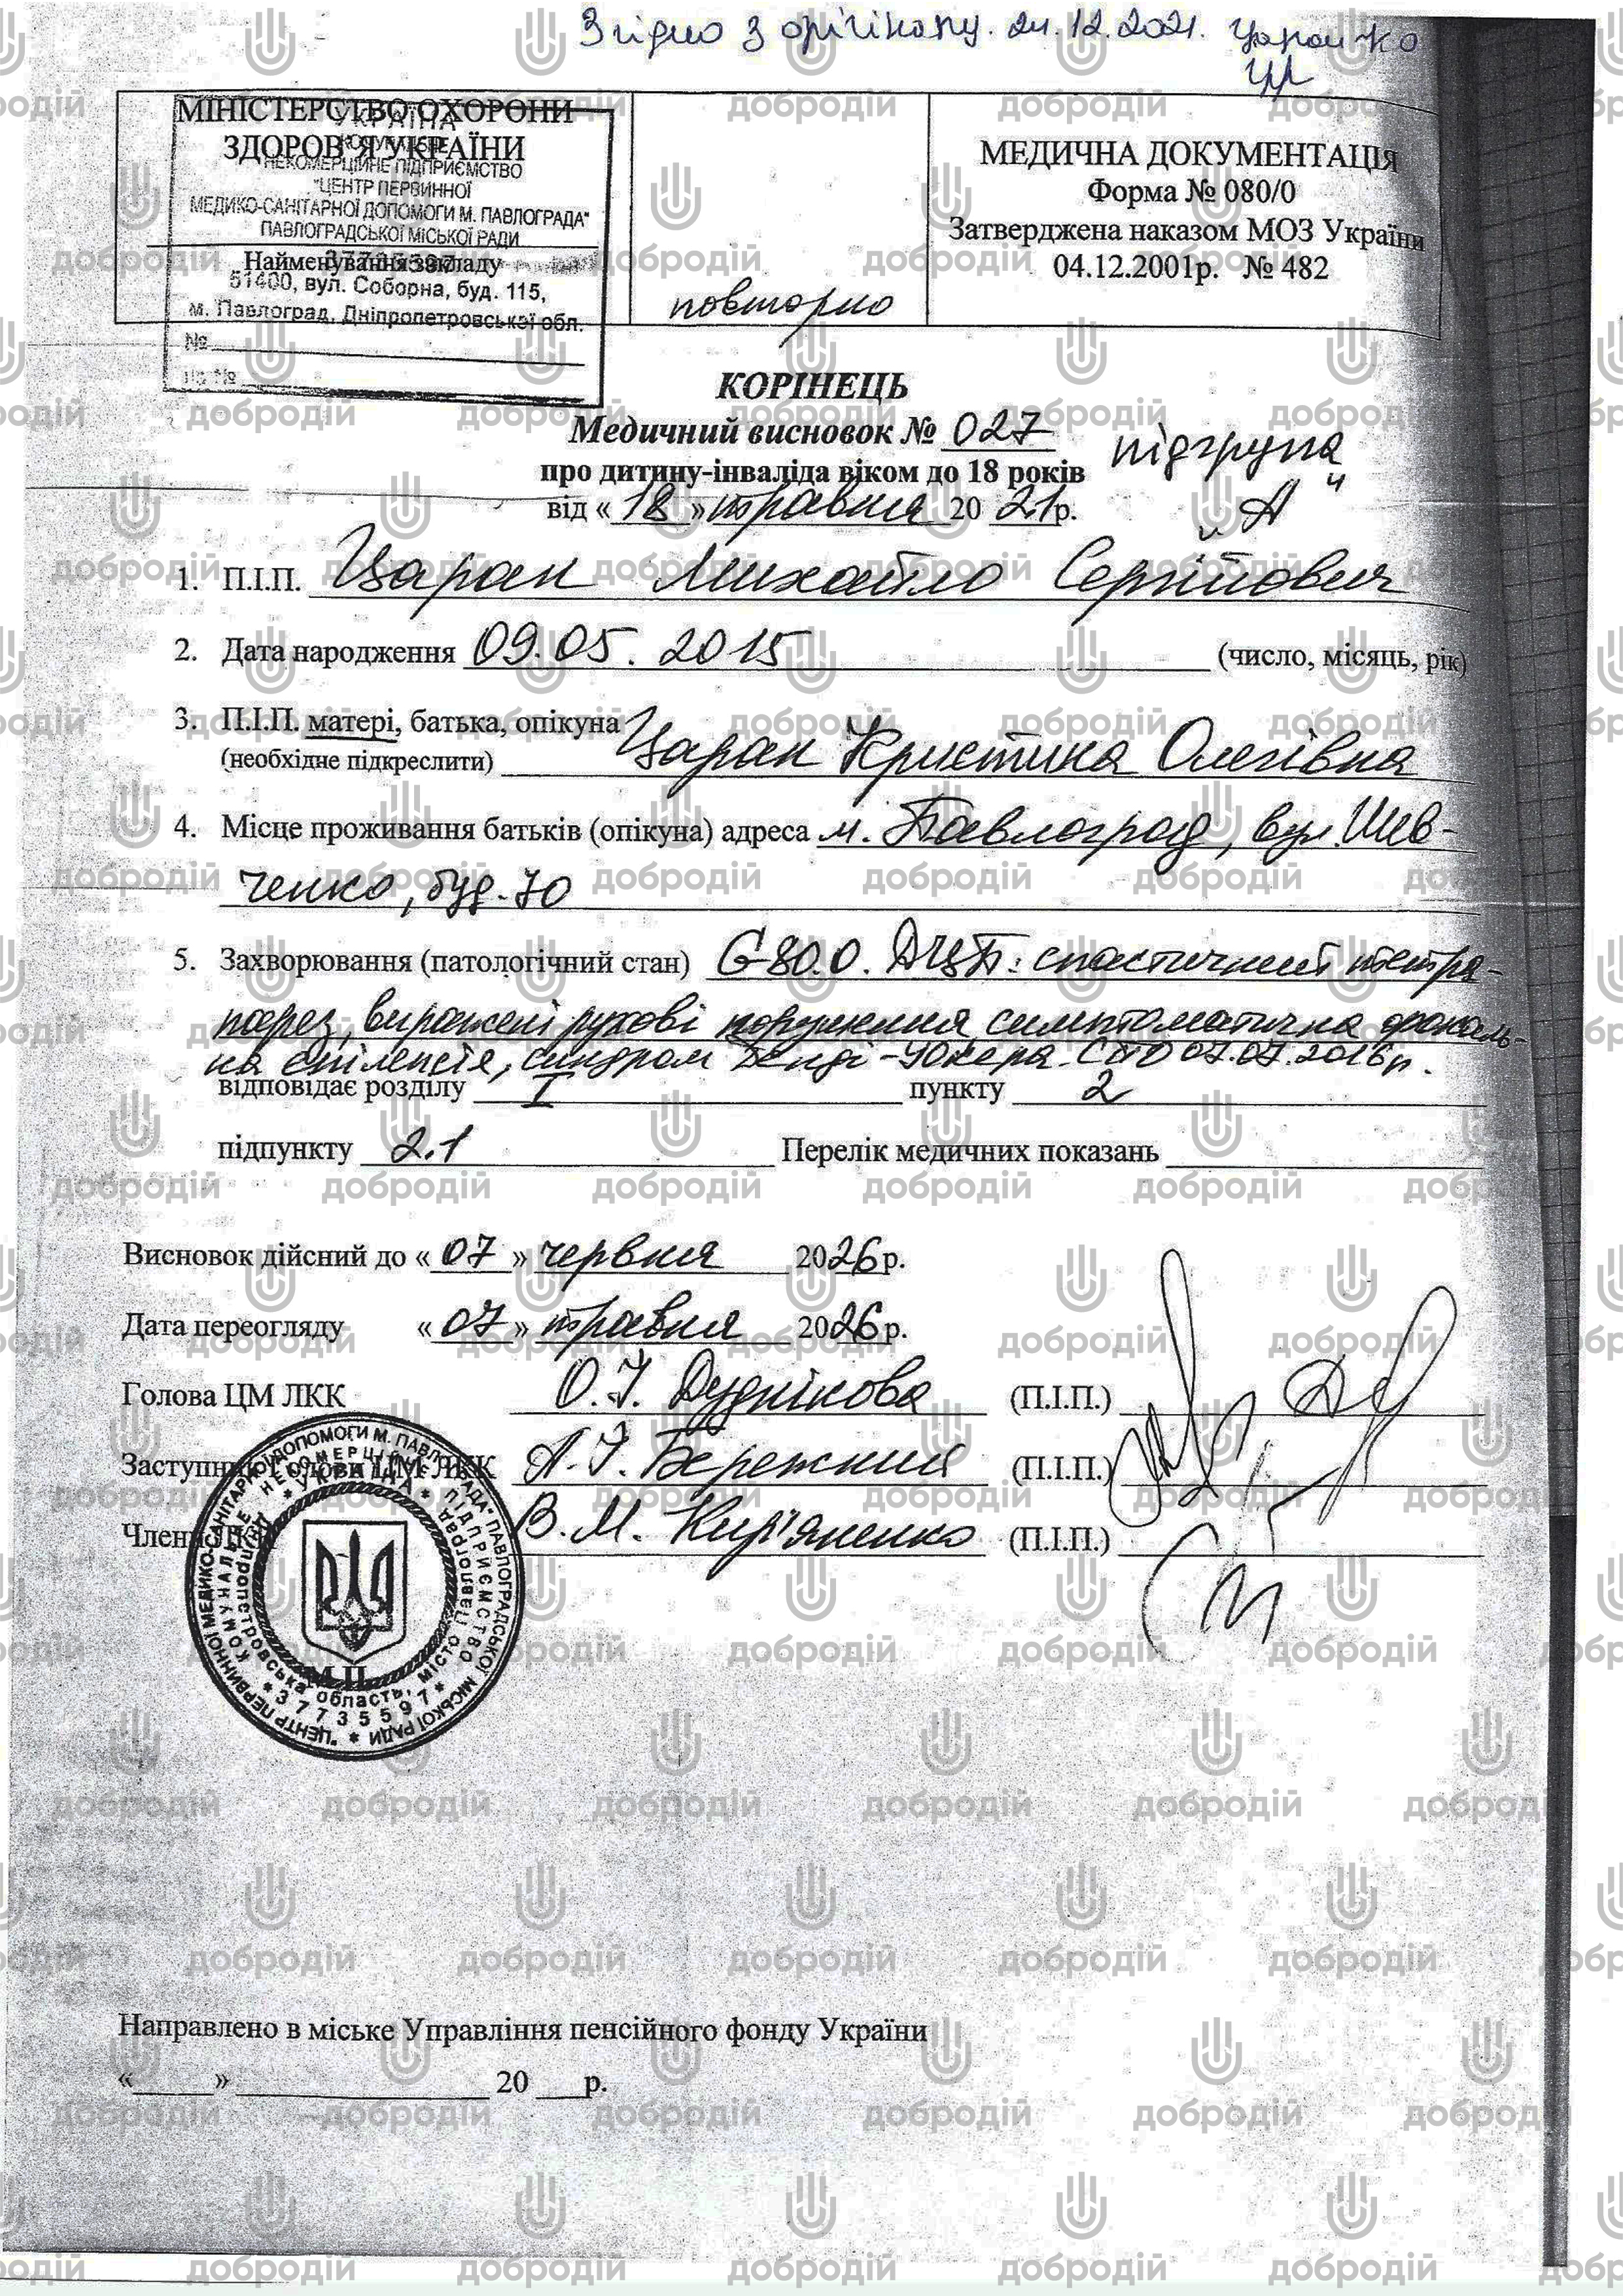 Згідно з орігіналу. 24.12.2021.
МІНІСТЕРСТВО ОХОРОНИ
ЗДОРОВ'Я УКРАЇНИ
УКРАЇНА
КОМУНАЛЬНЕ
НЕКОМЕРЦІЙНЕ ПІДПРИЄМСТВО
"ЦЕНТР ПЕРВИННОЇ
МЕДИКО-САНІТАРНОЇ ДОПОМОГИ М. ПАВЛОГРАДА"
ПАВЛОГРАДСЬКОЇ МІСЬКОЇ РАДИ
Найменування закладу
37735597
51400, вул. Соборна, буд. 115,
м. Павлоград, Дніпропетровської обл.
№
на №
повторно
МЕДИЧНА ДОКУМЕНТАЦІЯ
Форма № 080/0
Затверджена наказом МОЗ України
04.12.2001р. № 482
КОРІНЕЦЬ
Медичний висновок № 027
підгрупа
про дитину-інваліда віком до 18 років
„А"
від «18» травня 20 21р.
1. П.І.П. Царан Михайло Сергійович
2. Дата народження 09.05.2015 (число, місяць, рік)
3. П.І.П. матері, батька, опікуна Царан Кристина Олегівна
(необхідне підкреслити)
4. Місце проживання батьків (опікуна) адреса м. Павлоград, вул. Шев-
ченко, буд. 70
5. Захворювання (патологічний стан) G-80.0. ДЦП: спастичний тетра-
парез, виражені рухові порушення, симптоматична фокаль-
на епілепсія, синдром Денді-Уокера. 07.07.2016р.
відповідає розділу I пункту 2
підпункту 2.1 Перелік медичних показань
Висновок дійсний до «07» червня 2026 р.
Дата переогляду «07» травня 2026 р.
Голова ЦМ ЛКК О.І. Дуднікова (П.І.П.)
Заступник голови ЦМ ЛКК А.І. Бережний (П.І.П.)
Члени ЛКК В.М. Кир'яненко (П.І.П.)
"ЦЕНТР ПЕРВИННОЇ МЕДИКО-САНІТАРНОЇ ДОПОМОГИ М. ПАВЛОГРАДА" ПАВЛОГРАДСЬКОЇ МІСЬКОЇ РАДИ
КОМУНАЛЬНЕ НЕКОМЕРЦІЙНЕ ПІДПРИЄМСТВО
УКРАЇНА
Дніпропетровська область, місто Павлоград
* 37735597 *
М.П.
Направлено в міське Управління пенсійного фонду України
«____» ____ 20 ___р.
добродій